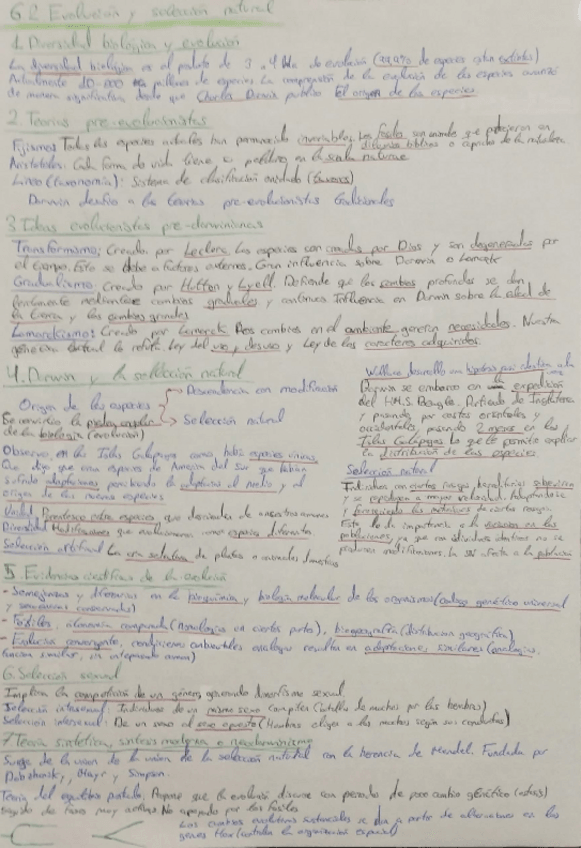 6.2 Evolución y selección natural
1. Diversidad biológica y evolución
La diversidad biológica es el producto de 3 a 4 de evolución (99,9% de especies están extintas)
Actualmente 10-000 millones de especies La comprensión de la evolución de las especies avanzó
de manera significativa desde que Charles Darwin publicó El origen de las especies
2. Teorías pre-evolucionistas
Fijismo: Todas las especies actuales han permanecido invariables. Los fósiles son animales que perecieron en
diluvios bíblicos o capricho de la naturaleza
Aristóteles: Cada forma de vida tiene su peldaño en la scala naturae
Lineo (taxonomía): Sistema de clasificación anidado
Darwin desafió a las teorías pre-evolucionistas tradicionales
3. Ideas evolucionistas pre-darwinianas
Transformismo: Creado por Leclerc Las especies son creadas por Dios y son degeneradas por
el tiempo. Esto se debe a factores externos. Gran influencia sobre Darwin o Lamarck
Gradualismo: Creado por Hutton y Lyell. Defiende que los cambios profundos se dan
lentamente mediante cambios graduales y continuos Influencia en Darwin sobre la edad de
la tierra y los cambios graduales
Lamarckismo: Creado por Lamarck Los cambios en el ambiente generan necesidades. Nuestra
genética actual lo refuta. Ley del uso y desuso y Ley de los caracteres adquiridos.
4. Darwin y la selección natural
Origen de las especies
Descendencia con modificación
Selección natural
Se convirtió la piedra angular
de la biología (evolución)
Observó, en las Islas Galápagos como había especies únicas.
Que dijo que eran especies de America del Sur que habían
sufrido adaptaciones permitiendo la adaptación al medio y el
origen de las nuevas especies
Unidad Parentesco entre especies que descienden de un ancestro común
Diversidad Modificaciones que evolucionaron como especies diferentes
Selección artificial La cría selectiva de plantas o animales domésticos
Wallace desarrolló una hipótesis casi idéntica a la
Darwin se embarcó en la expedición
del H.M.S. Beagle. Partiendo de Inglaterra
y pasando por costas orientales y
occidentales, pasando 2 meses en las
Islas Galápagos Lo que le permitió explicar
la distribución de las especies
Selección natural
Individuos con ciertos rasgos hereditarios sobreviven
y se reproducen a mayor velocidad. Adaptándose
y favoreciendo los individuos de ciertos rasgos
Esto le da importancia a la variación en las
poblaciones, ya que con individuos idénticos no se
producen modificaciones. La SN afecta a la población
5. Evidencias científicas de la evolución
- Semejanzas y diferencias en la bioquímica y biología molecular de los organismos (código genético universal
y secuencias conservadas)
- Fósiles, anatomía comparada (Homólogos en ciertas partes), biogeografía (distribución geográfica)
- Evolución convergente, condiciones ambientales análogas resultan en adaptaciones similares (análogas,
función similar, sin antepasado común)
6. Selección sexual
Implica la competición de un género, generando dimorfismo sexual
Selección intrasexual: Individuos de un mismo sexo compiten (Batalla de machos por las hembras)
Selección intersexual: De un sexo al sexo opuesto (Hembras eligen a los machos según sus conductas)
7 Teoría sintética, síntesis moderna o neodarwinismo
Surge de la unión de la unión de la selección natural con la herencia de Mendel. Fundada por
Dobzhansky, Mayr y Simpson.
Teoría del equilibrio puntuado, Propone que la evolución discurre con periodo de poco cambio genético (estasis)
seguido de fases muy activas No apoyado por los fósiles
Los cambios evolutivos sustanciales se dan a partir de alteraciones en los
genes Hox (controlan la organización espacial)